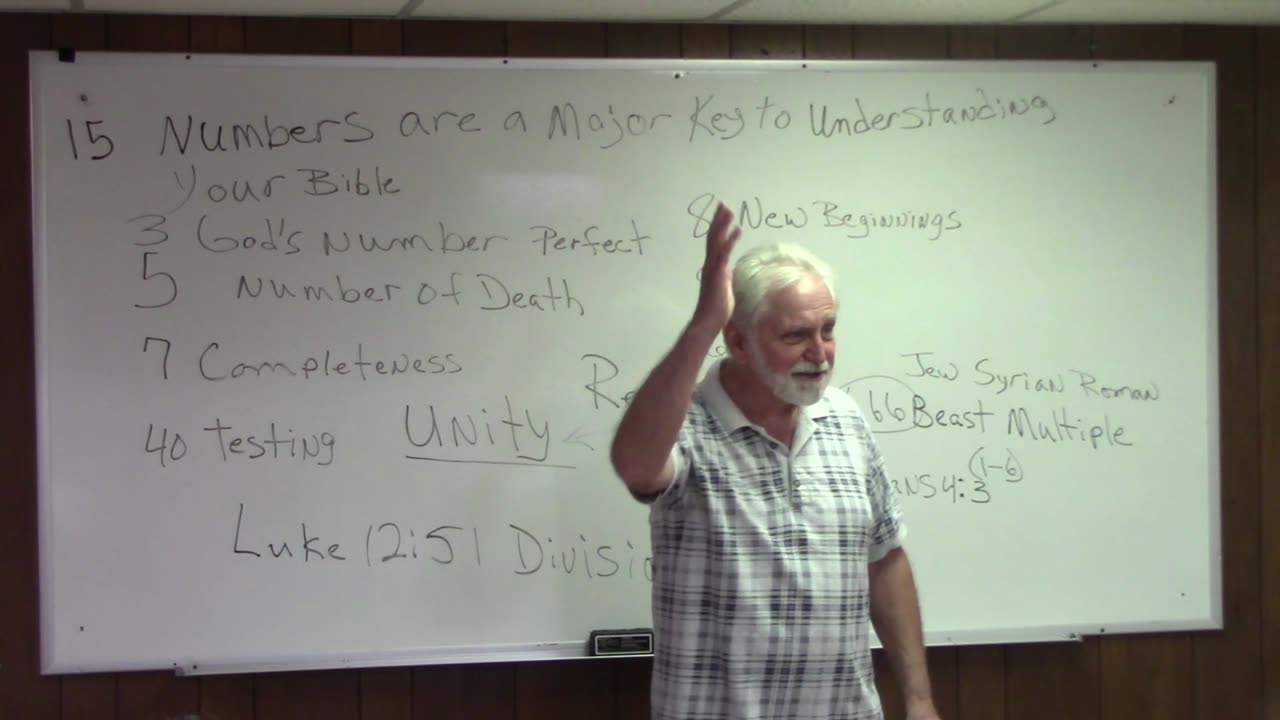 15 Numbers are a Major Key to Understanding
your Bible
3 God's Number Perfect
5 Number of Death
7 Completeness
40 Testing
Unity
Luke 12:51
8 New Beginnings
Jew Syrian Roman
66 Beast Multiple
4:3
(1-6)